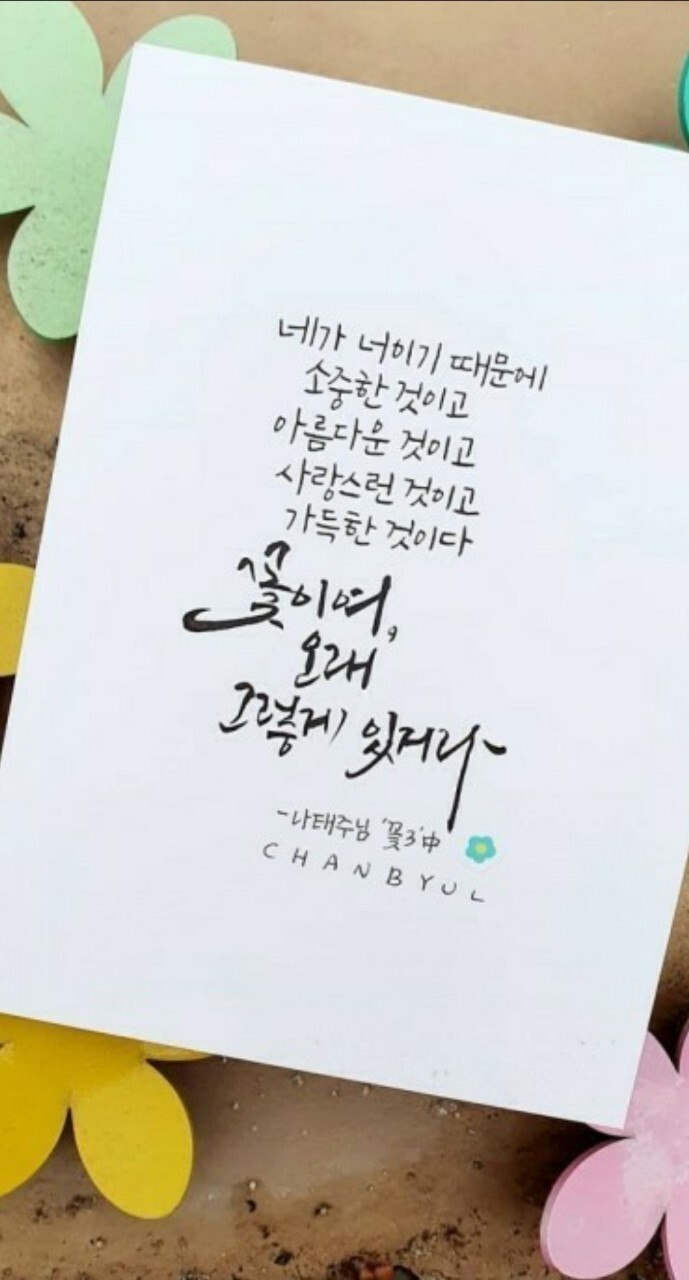 네가 너이기 때문에
소중한 것이고
아름다운 것이고
사랑스런 것이고
가득한 것이다
꽃이여,
오래
그렇게 있거라
-나태주님 '꽃3' 中
CHANBYUL